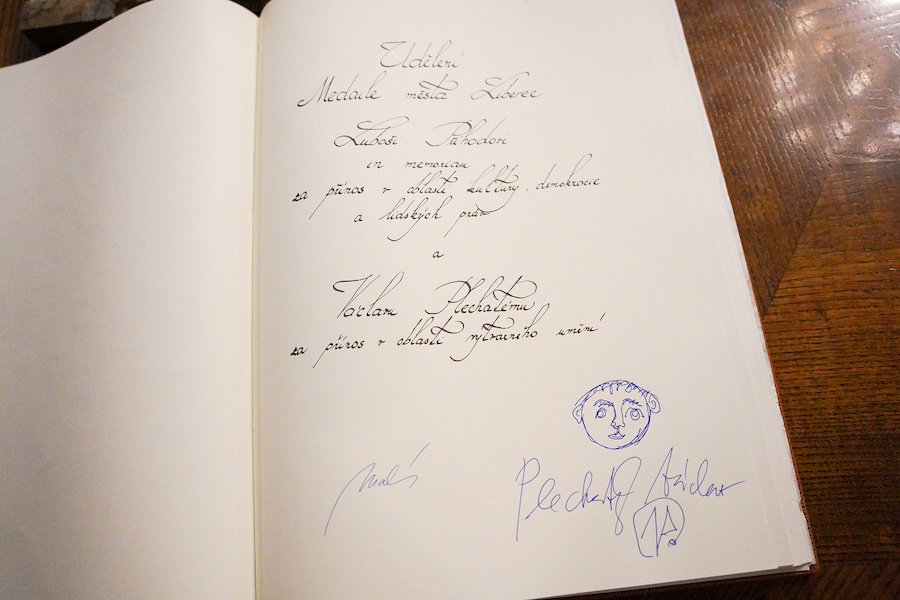 Udělení
Medaile města Liberec
Luboši Příhodovi
in memoriam
za přínos v oblasti kultury, demokracie
a lidských práv
a
Václavu Plechatému
za přínos v oblasti výtvarného umění
Plechatý